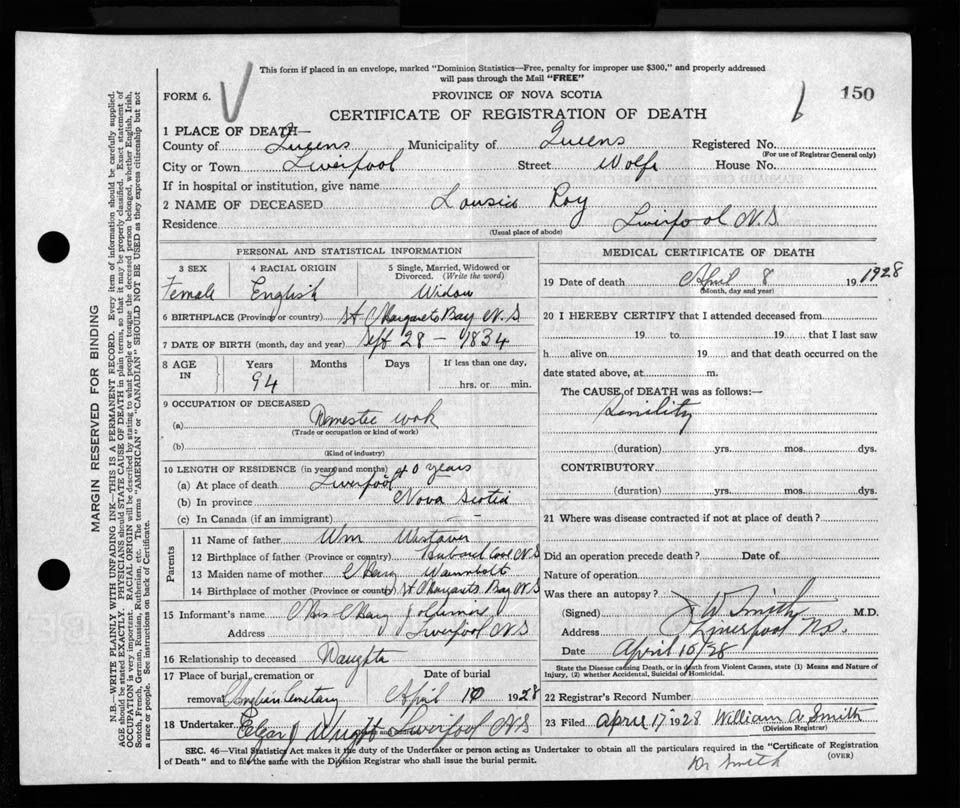 This form if placed in an envelope, marked "Dominion Statistics—Free, penalty for improper use $300," and properly addressed
will pass through the Mail "FREE"
FORM 6.
PROVINCE OF NOVA SCOTIA
150
CERTIFICATE OF REGISTRATION OF DEATH
1 PLACE OF DEATH—
County of Queens Municipality of Queens Registered No.
(For use of Registrar General only)
City or Town Liverpool Street Wolfe House No.
If in hospital or institution, give name
2 NAME OF DECEASED Roy
Residence Liverpool N.S.
(Usual place of abode)
PERSONAL AND STATISTICAL INFORMATION
3 SEX 4 RACIAL ORIGIN 5 Single, Married, Widowed or
Divorced. (Write the word)
Female English Widow
6 BIRTHPLACE (Province or country) St Margarets Bay N.S
7 DATE OF BIRTH (month, day and year) Sept 28 - 1834
8 AGE IN Years Months Days If less than one day,
94 hrs. or min.
9 OCCUPATION OF DECEASED
(a) Domestic work
(Trade or occupation or kind of work)
(b)
(Kind of industry)
10 LENGTH OF RESIDENCE (in years and months) 40 years
(a) At place of death Liverpool
(b) In province Nova Scotia
(c) In Canada (if an immigrant)
Parents
11 Name of father Wm Westaver
12 Birthplace of father (Province or country) N.S
13 Maiden name of mother Mary
14 Birthplace of mother (Province or country) St Margarets Bay N.S
15 Informant's name Mrs Mary
Address Liverpool N.S
16 Relationship to deceased Daughter
17 Place of burial, cremation or Date of burial
removal Cemetary April 10 1928
18 Undertaker Wright Liverpool N.S
MEDICAL CERTIFICATE OF DEATH
19 Date of death April 8 1928
(Month, day and year)
20 I HEREBY CERTIFY that I attended deceased from
19 to 19 that I last saw
h alive on 19 and that death occurred on the
date stated above, at m.
The CAUSE of DEATH was as follows:—
Senility
(duration) yrs. mos. dys.
CONTRIBUTORY.
(duration) yrs. mos. dys.
21 Where was disease contracted if not at place of death?
Did an operation precede death? Date of
Nature of operation
Was there an autopsy?
(Signed) J W Smith M.D.
Address Liverpool N.S.
Date April 10/28
State the Disease causing Death, or in death from Violent Causes, state (1) Means and Nature of
Injury, (2) whether Accidental, Suicidal or Homicidal.
22 Registrar's Record Number
23 Filed April 17 1928 William A Smith
(Division Registrar)
SEC. 46—Vital Statistics Act makes it the duty of the Undertaker or person acting as Undertaker to obtain all the particulars required in the "Certificate of Registration
of Death" and to file the same with the Division Registrar who shall issue the burial permit.
(OVER)
Dr Smith
MARGIN RESERVED FOR BINDING
N.B.—WRITE PLAINLY WITH UNFADING INK—THIS IS A PERMANENT RECORD. Every item of information should be carefully supplied.
AGE should be stated EXACTLY. PHYSICIANS should STATE CAUSE OF DEATH in plain terms, so that it may be properly classified. Exact statement of
OCCUPATION is very important. RACIAL ORIGIN will be described by stating to what people or tongue the deceased person belonged, whether English, Irish,
Scotch, French, German, Russian, Ruthenian, etc. The terms "AMERICAN" or "CANADIAN" SHOULD NOT BE USED as they express citizenship but not
a race or people. See instructions on back of Certificate.